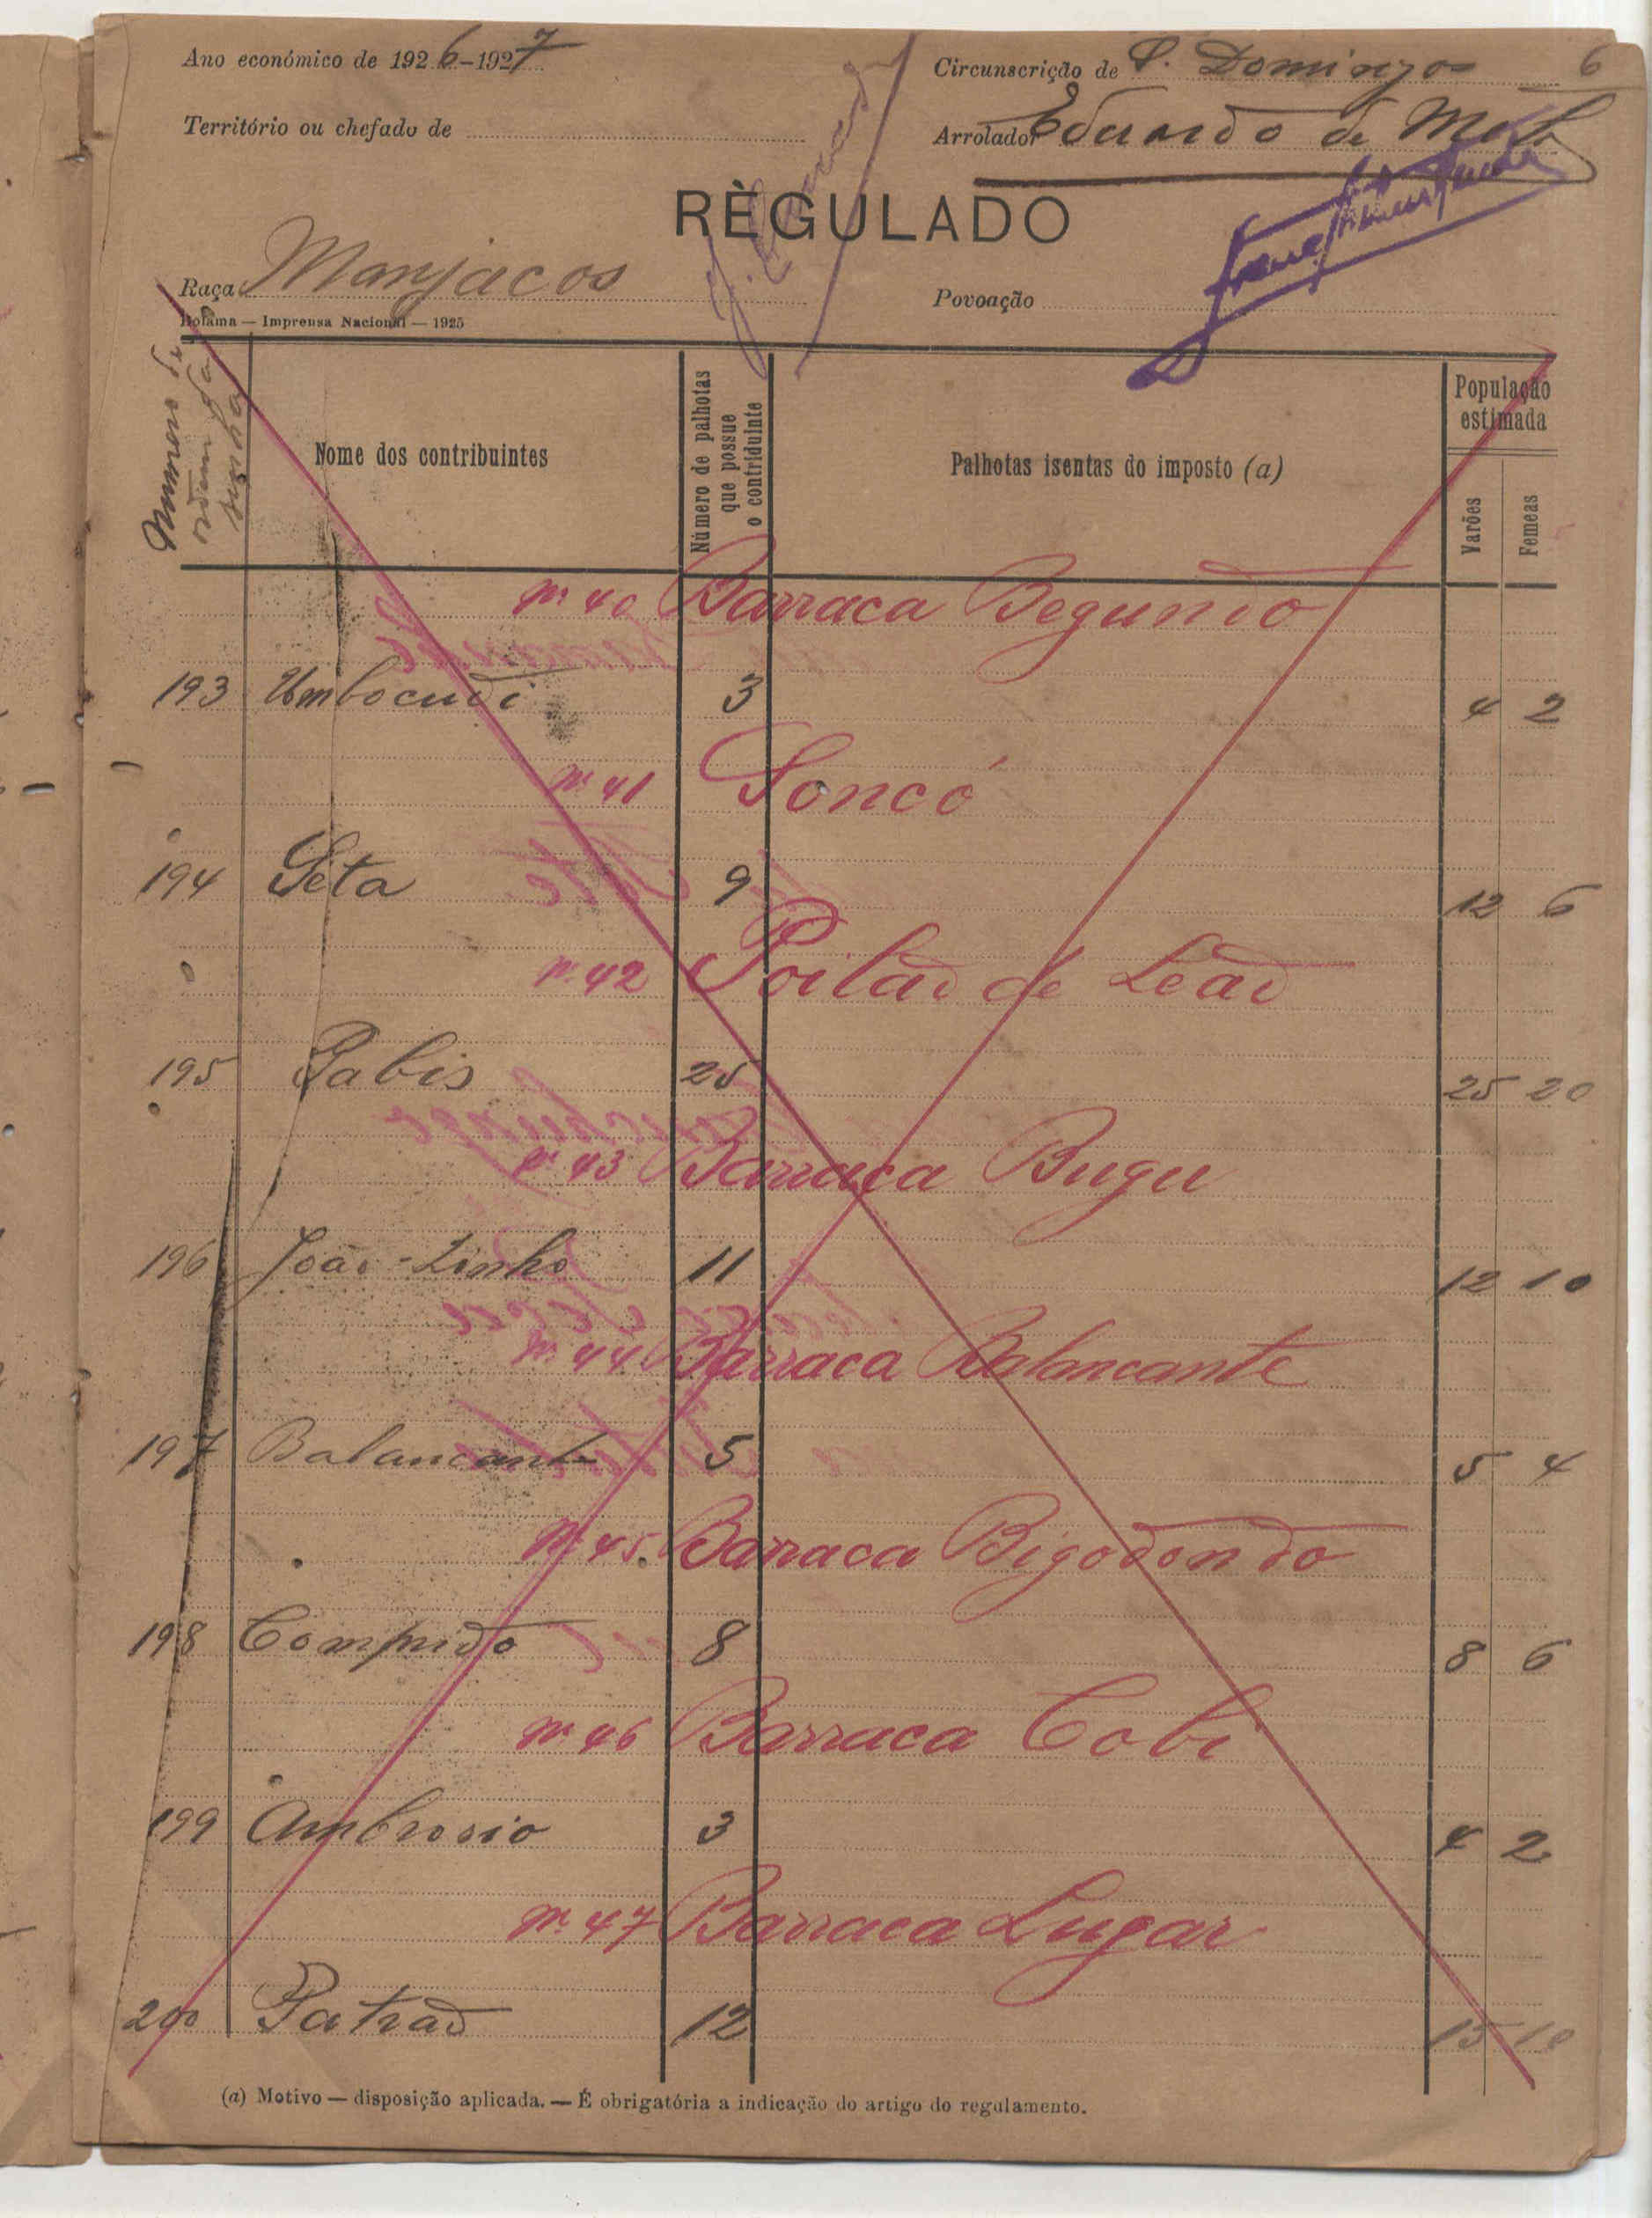 Ano económico de 1926-1927
Circunscrição de S. Domingos 6
Território ou chefado de
Arrolador Eduardo de
RÈGULADO
Raça Manjacos
Povoação
Bolama — Imprensa Nacional — 1925
Numeros de ordem da
Nome dos contribuintes
Número de palhotas que possue o contriduinte
Palhotas isentas do imposto (a)
População estimada
Varões
Femeas
Nº 40 Barraca Begundo
193 Umbocudi 3 4 2
Nº 41 Soncó
194 Seta 9 12 6
Nº 42 Poilão de Leão
195 Pabis 25 25 20
Nº 43 Barraca Bugu
196 João-Zinho 11 12 10
Nº 44 Barraca Balancante
197 Balancante 5 5 4
Nº 45 Barraca Bigodondo
198 Comprido 8 8 6
Nº 46 Barraca Cobi
199 Ambrosio 3 4 2
Nº 47 Barraca Lugar
200 Patrão 12 15 10
(a) Motivo — disposição aplicada. — É obrigatória a indicação do artigo do regulamento.